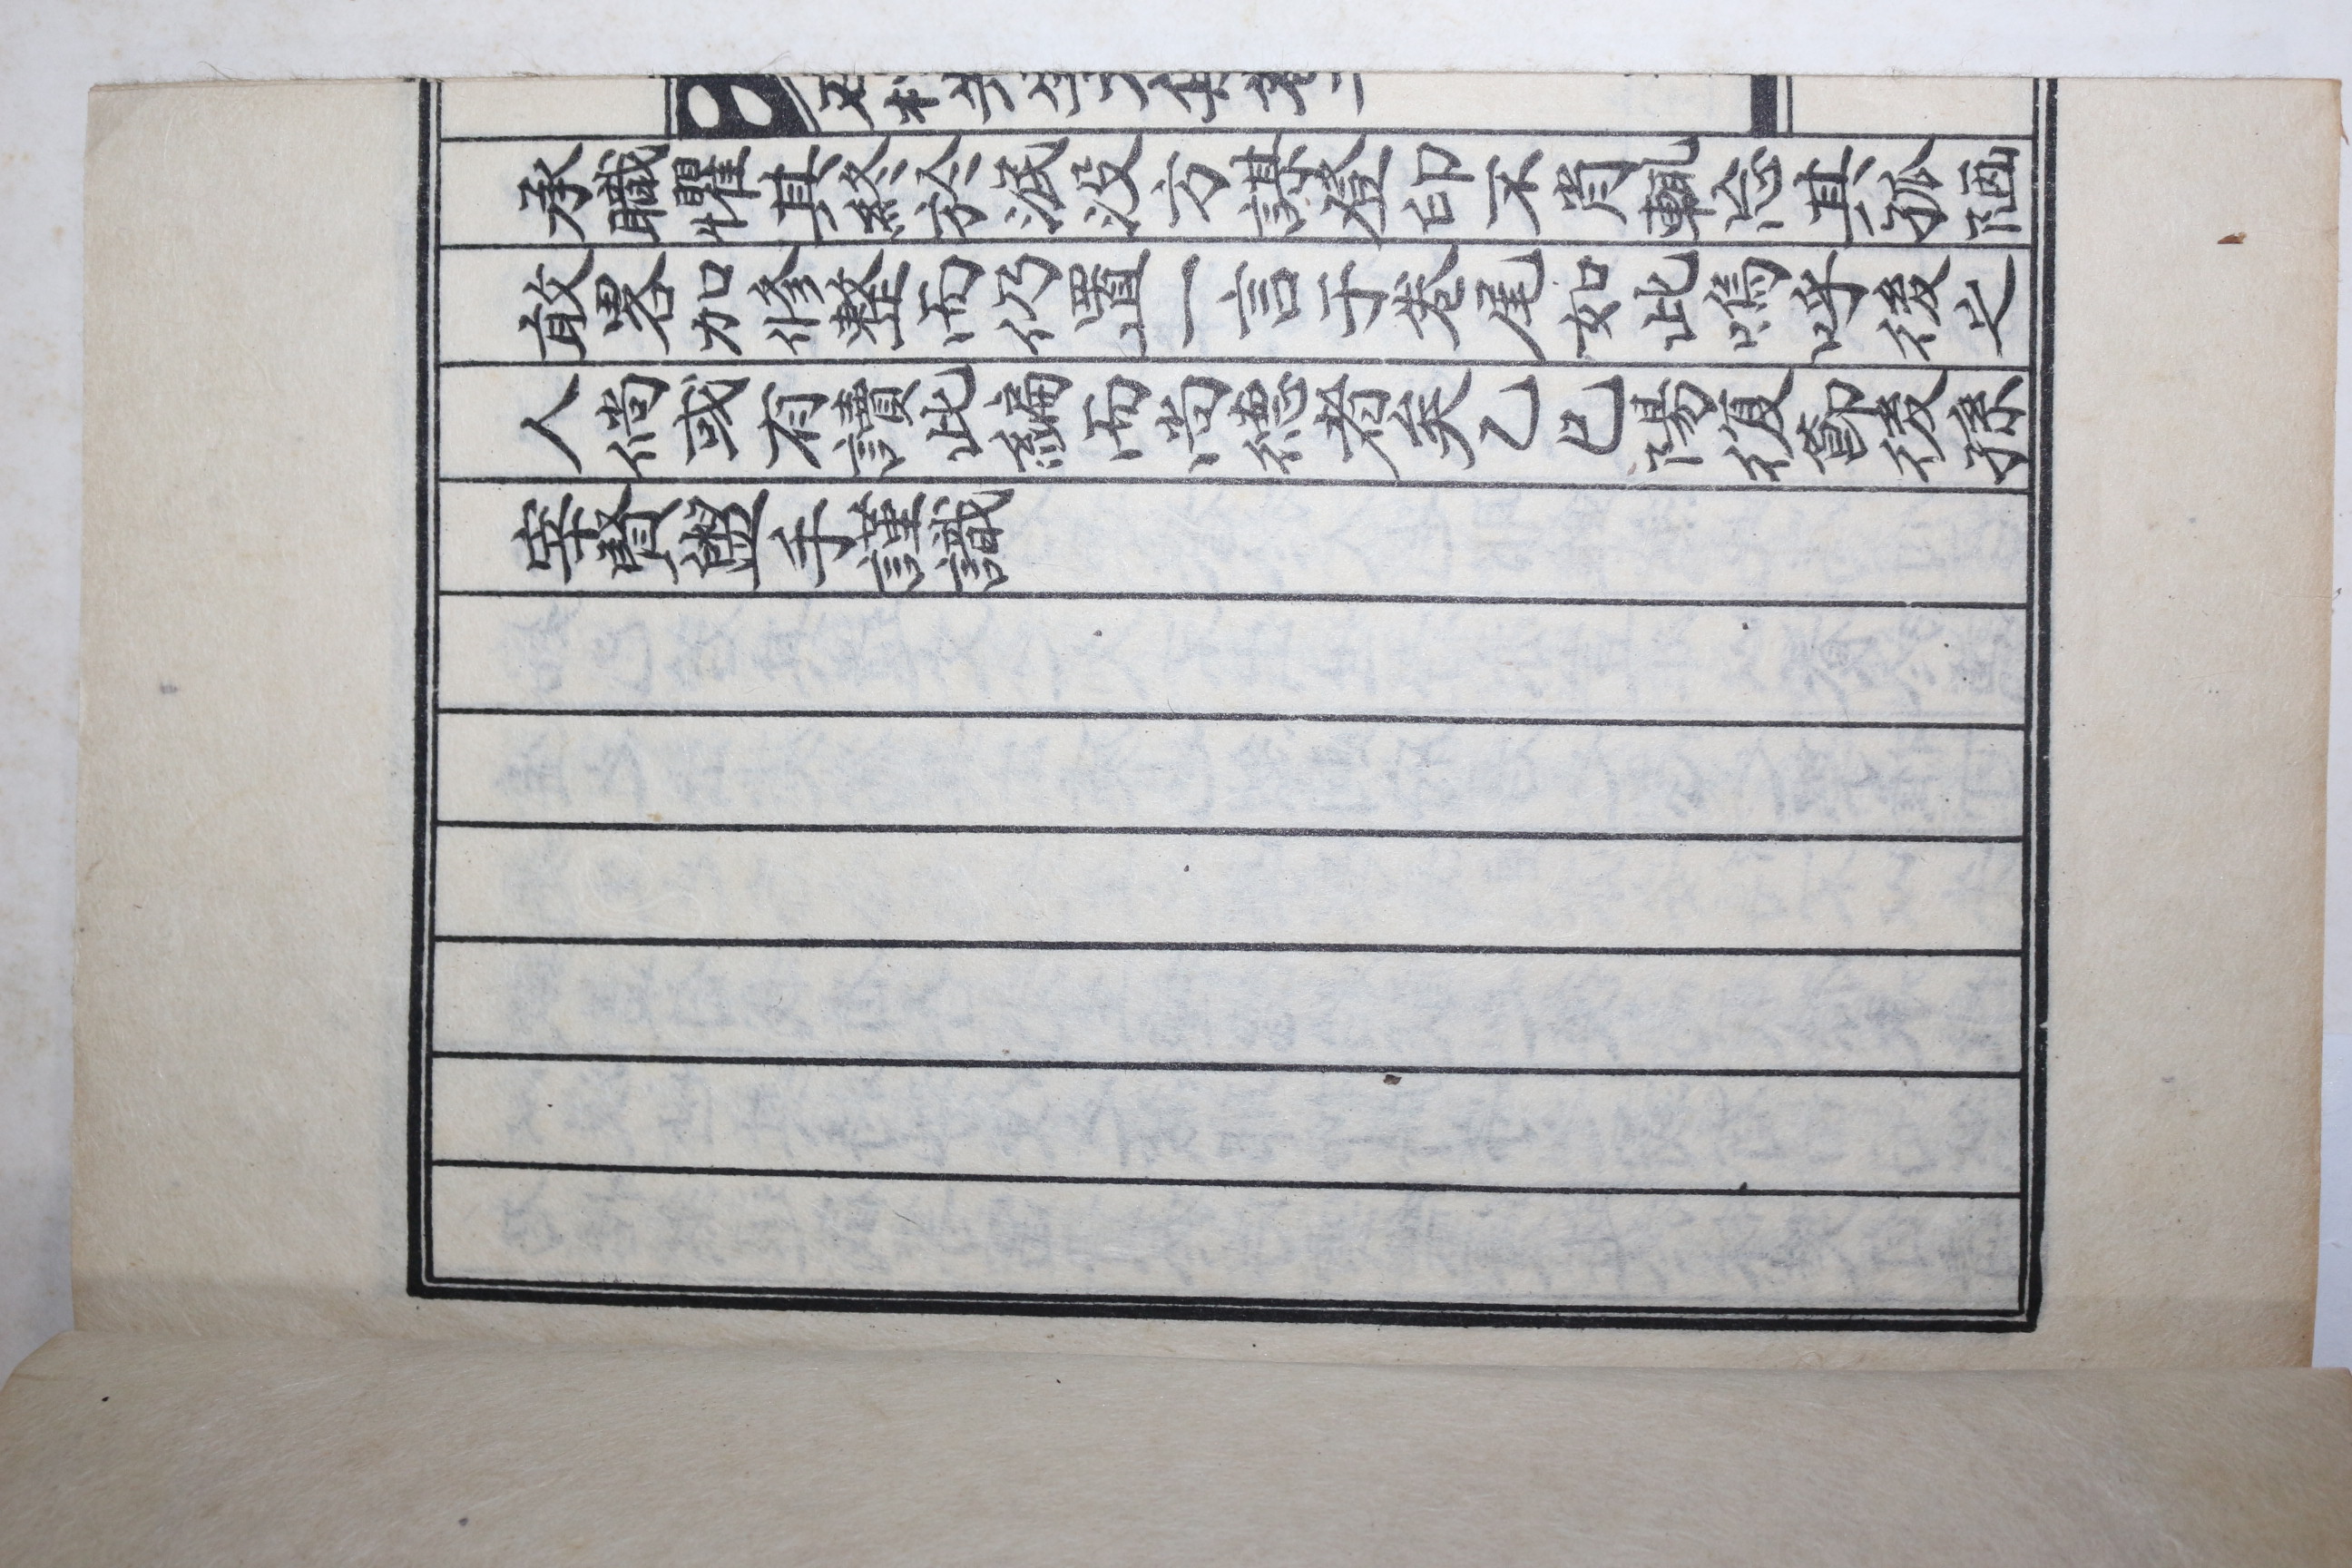 先生文集卷二
承職懼其終於泯没方謀登印不肖輒忘其孤陋
敢畧加修整而仍置一言于卷尾如此嗚呼後之
人倘或有讀此編而尚德者矣乙巳陽復節後孫
宰賢盥手謹識